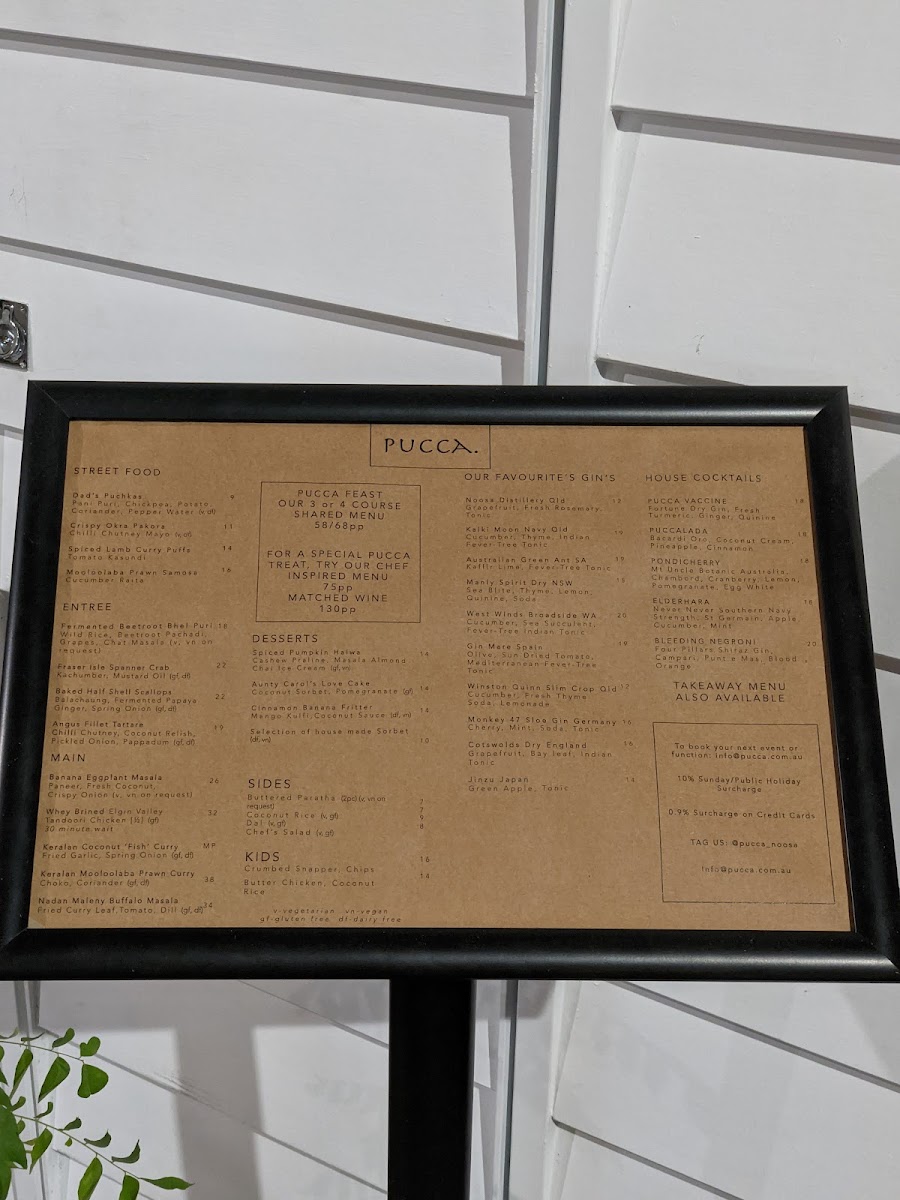 PUCCA.
STREET FOOD
Dad's Puchkas 9
Pani Puri, Chickpea, Potato,
Coriander, Pepper Water (v, df)
Crispy Okra Pakora 13
Chilli Chutney Mayo (v, df)
Spiced Lamb Curry Puffs 14
Tomato Kasundi
Mooloolaba Prawn Samosa 16
Cucumber Raita
ENTREE
Fermented Beetroot Bhel Puri 18
Wild Rice, Beetroot Pachadi,
Grapes, Chat Masala (v, vn on
request)
Fraser Isle Spanner Crab 22
Kachumber, Mustard Oil (gf, df)
Baked Half Shell Scallops 22
Balachaung, Fermented Papaya
Ginger, Spring Onion (gf, df)
Angus Fillet Tartare 19
Chilli Chutney, Coconut Relish,
Pickled Onion, Pappadum (gf, df)
MAIN
Banana Eggplant Masala 26
Paneer, Fresh Coconut,
Crispy Onion (v, vn on request)
Whey Brined Elgin Valley 32
Tandoori Chicken [½] (gf)
30 minute wait
Keralan Coconut 'Fish' Curry MP
Fried Garlic, Spring Onion (gf, df)
Keralan Mooloolaba Prawn Curry
Choko, Coriander (gf, df) 38
Nadan Maleny Buffalo Masala 34
Fried Curry Leaf, Tomato, Dill (gf, df)
PUCCA FEAST
OUR 3 or 4 COURSE
SHARED MENU
58/68pp
FOR A SPECIAL PUCCA
TREAT, TRY OUR CHEF
INSPIRED MENU
75pp
MATCHED WINE
130pp
DESSERTS
Spiced Pumpkin Halwa 14
Cashew Praline, Masala Almond
Chai Ice Cream (gf, vn)
Aunty Carol's Love Cake 14
Coconut Sorbet, Pomegranate (gf)
Cinnamon Banana Fritter 14
Mango Kulfi, Coconut Sauce (df, vn)
Selection of house made Sorbet
(df, vn) 10
SIDES
Buttered Paratha (2pc) (v, vn on 7
request)
Coconut Rice (v, gf) 7
Dal (v, gf) 9
Chef's Salad (v, gf) 8
KIDS
Crumbed Snapper, Chips 16
Butter Chicken, Coconut 14
Rice
v-vegetarian vn-vegan
gf-gluten free df-dairy free
OUR FAVOURITE'S GIN'S
Noosa Distillery Qld
Grapefruit, Fresh Rosemary,
Tonic
Kalki Moon Navy Qld
Cucumber, Thyme, Indian
Fever-Tree Tonic
Australian Green Ant SA 19
Kaffir Lime, Fever-Tree Tonic
Manly Spirit Dry NSW 15
Sea Blite, Thyme, Lemon,
Quinine, Soda
West Winds Broadside WA 20
Cucumber, Sea Succulent,
Fever-Tree Indian Tonic
Gin Mare Spain 19
Olive, Sun Dried Tomato,
Mediterranean Fever-Tree
Tonic
Winston Quinn Slim Crop Qld 12
Cucumber, Fresh Thyme
Soda, Lemonade
Monkey 47 Sloe Gin Germany 16
Cherry, Mint, Soda, Tonic
Cotswolds Dry England 16
Grapefruit, Bay leaf, Indian
Tonic
Jinzu Japan 14
Green Apple, Tonic
HOUSE COCKTAILS
PUCCA VACCINE 18
Fortune Dry Gin, Fresh
Turmeric, Ginger, Quinine
PUCCALADA 18
Bacardi Oro, Coconut Cream,
Pineapple, Cinnamon
PONDICHERRY 18
Mt Uncle Botanic Australis,
Chambord, Cranberry, Lemon,
Pomegranate, Egg White
ELDERHARA 18
Never Never Southern Navy
Strength, St Germain, Apple,
Cucumber, Mint
BLEEDING NEGRONI 20
Four Pillars Shiraz Gin,
Campari, Punt e Mas, Blood
Orange
TAKEAWAY MENU
ALSO AVAILABLE
To book your next event or
function: info@pucca.com.au
10% Sunday/Public Holiday
Surcharge
0.9% Surcharge on Credit Cards
TAG US: @pucca_noosa
info@pucca.com.au